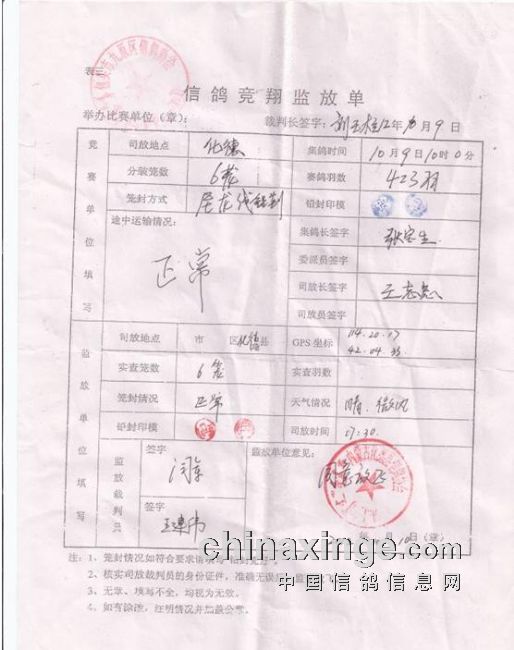 表三
信鸽竞翔监放单
举办比赛单位（章）： 裁判长签字： 12年10月9日
竞赛单位填写
司放地点 化德 集鸽时间 10月9日10时0分
分装笼数 6笼 赛鸽羽数 423羽
笼封方式 尼龙线铅封 铅封印模
途中运输情况： 正常
集鸽长签字 张宝生
委派员签字
司放长签字 王志忠
司放员签字
监放单位填写
司放地点 市 区化德县 GPS坐标 114.20.17
42.04.35
实查笼数 6笼 实查羽数
笼封情况 正常 天气情况 晴.微风
铅封印模 司放时间 07:30.
监放裁判员 签字 监放单位意见：
同意放飞
签字 王建伟
月10日（章）
注：1、笼封情况如符合要求请填写
2、核实司放裁判员的身份证件，准确无误
3、无章、填写不全，均视为无效。
4、如有涂改，注明情况并加盖公章。
chinaxinge.com
中国信鸽信息网